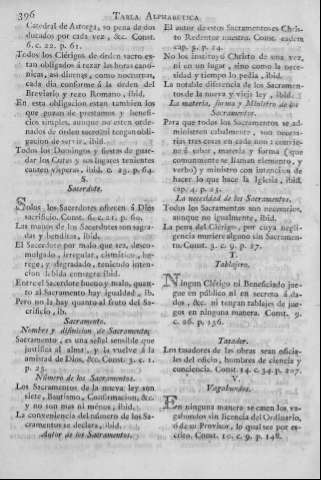 396 TABLA ALPHABETICA
Catedral de Astorga, so pena de dos
ducados por cada vez, &c. Const.
6. c. 22. p. 61.
Todos los Clérigos de orden sacro es-
tan obligados á rezar las horas canó-
nicas, asi diurnas, como nocturnas,
cada dia conforme á la órden del
Breviario y rezo Romano, ibid.
En esta obligacion estan tambien los
que gozan de prestamos y benefi-
cios simples, aunque no esten orde-
nados de órden sacro, ni tengan obli-
gacion de servir, ibid.
Todos los Domingos y fiestas de guar-
dar los Curas y sus lugares tenientes
canten vísperas, ibid. c. 23. p. 64.
S.
Sacerdote.
Solos los Sacerdotes ofrecen á Dios
sacrificio. Const. 6. c. 21. p. 60.
Las manos de los Sacerdotes son sagra-
das y benditas, ibid.
El Sacerdote por malo que sea, desco-
mulgado, irregular, cismático, he-
rege, y degradado, teniendo inten-
cion debida consagra, ibid.
Entre el Sacerdote bueno y malo, quan-
to al Sacramento hay igualdad, ib.
Pero no la hay quanto al fruto del Sa-
crificio, ib.
Sacramento.
Nombre y difinicion de Sacramento.
Sacramento, es una señal sensible que
justifica al alma, y la vuelve á la
amistad de Dios, &c. Const. 3. c. 1.
p. 23.
Número de los Sacramentos.
Los Sacramentos de la nueva ley son
siete, Bautismo, Confirmacion, &c.
y no son mas ni ménos, ibid.
La conveniencia del número de los Sa-
cramentos se declara, ibid.
Autor de los Sacramentos.
El autor de estos Sacramentos es Chris-
to Redentor nuestro. Const. eadem
cap. 3. p. 24.
No los instituyó Christo de una vez,
ni en un lugar, sino como la nece-
sidad y tiempo lo pedia, ibid.
La notable diferencia de los Sacramen-
tos de la nueva y vieja ley, ibid.
La materia, forma y Ministro de los
Sacramentos.
Para que todos los Sacramentos se ad-
ministren cabalmente, son necesa-
rias tres cosas en cada uno á convie-
ne á saber, materia y forma (que
comunmente se llaman elemento, y
verbo) y ministro con intencion de
hacer lo que hace la Iglesia, ibid.
cap. 4. p. 25.
La necesidad de los Sacramentos.
Todos los Sacramentos son necesarios,
aunque no igualmente, ibid.
La pena del Clérigo, por cuya negli-
gencia muriere alguno sin Sacramen-
to. Const. 3. c. 9. p. 27.
T.
Tablajero.
Ningun Clérigo ni Beneficiado jue-
gue en público ni en secreto á da-
dos, &c. ni tengan tablajes de jue-
gos en ninguna manera. Const. 9.
c. 26. p. 136.
Tasador.
Los tasadores de las obras sean oficia-
les del oficio, hombres de ciencia y
conciencia. Const. 14. c. 34. p. 207.
V.
Vagabundos.
En ninguna manera se casen los va-
gabundos sin licencia del Ordinario,
ó de su Provisor, lo qual sea por es-
crito. Const. 10. c. 9. p. 148.